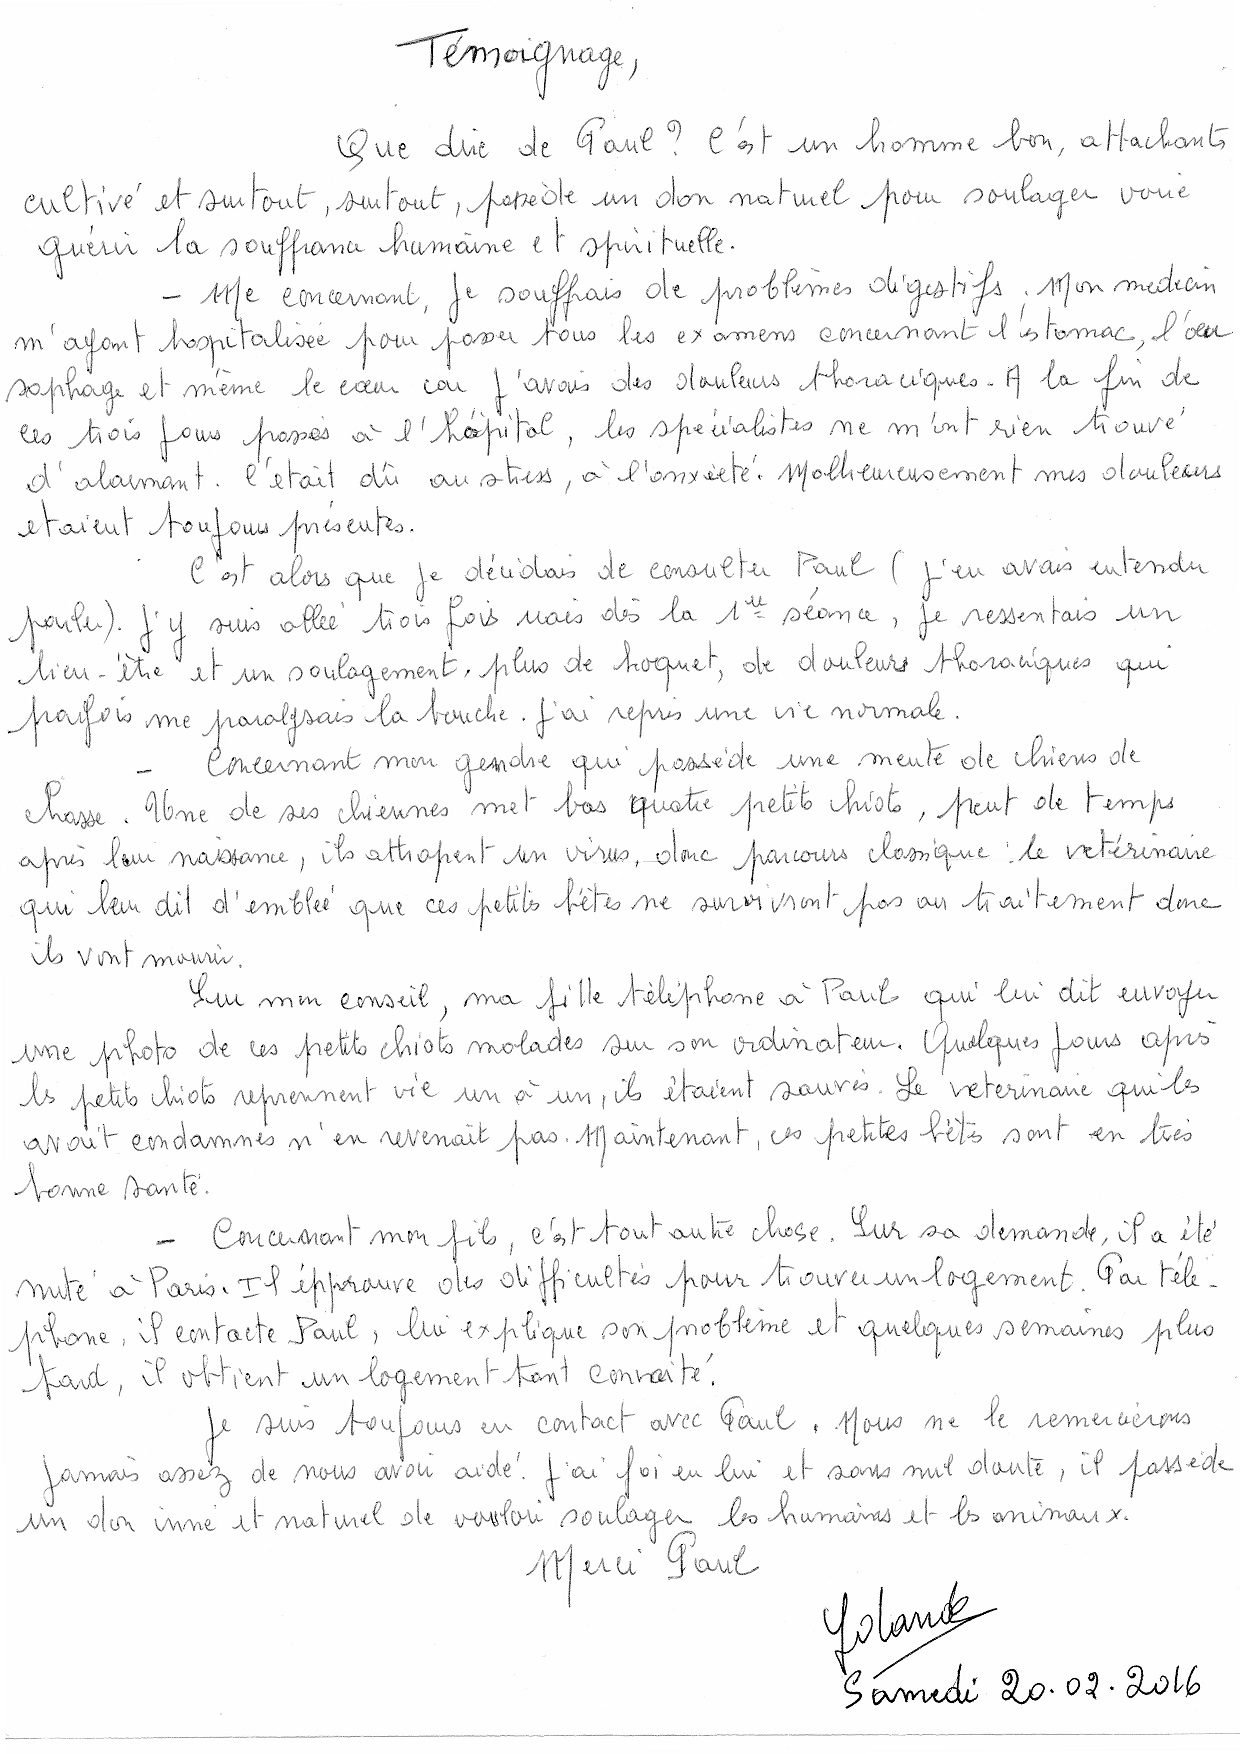 Témoignage,
Que dire de Paul ? C'est un homme bon, attachants
cultivé et surtout, surtout, possède un don naturel pour soulager voire
guérir la souffrance humaine et spirituelle.
- Me concernant, je souffrais de problèmes digestifs. Mon medecin
m'ayant hospitalisée pour passer tous les examens concernant l'estomac, l'oeu
sophage et même le cœur car j'avais des douleurs thoraciques. A la fin de
ces trois jours passés à l'hôpital, les spécialistes ne m'ont rien trouvé
d'alarmant. C'était dû au stress, à l'anxieté. Malheureusement mes douleurs
etaient toujours présentes.
C'est alors que je décidais de consulter Paul (j'en avais entendu
parler). J'y suis allée trois fois mais dès la 1ère séance, je ressentais un
bien-être et un soulagement, plus de hoquet, de douleurs thoraciques qui
parfois me paralysais la bouche. J'ai repris une vie normale.
- Concernant mon gendre qui possède une meute de chiens de
chasse. Une de ses chiennes met bas quatre petits chiots, peut de temps
après leur naissance, ils attrapent un virus, donc parcours classique : le vetérinaire
qui leur dit d'emblée que ces petites bêtes ne survivront pas au traitement donc
ils vont mourir.
Sur mon conseil, ma fille téléphone à Paul qui lui dit envoyer
une photo de ces petits chiots malades sur son ordinateur. Quelques jours après
les petits chiots reprennent vie un à un, ils étaient sauvés. Le veterinaire qui les
avait condamnés n'en revenait pas. Maintenant, ces petites bêtes sont en très
bonne santé.
- Concernant mon fils, c'est tout autre chose. Sur sa demande, il a été
muté à Paris. Il épprouve des difficultés pour trouver un logement. Par télé-
phone, il contacte Paul, lui explique son problème et quelques semaines plus
tard, il obtient un logement tant convoité.
Je suis toujours en contact avec Paul. Nous ne le remercierons
jamais assez de nous avoir aidé. J'ai foi en lui et sans nul doute, il possède
un don inné et naturel de vouloir soulager les humaines et les animaux.
Merci Paul
Yolande
Samedi 20.02.2016